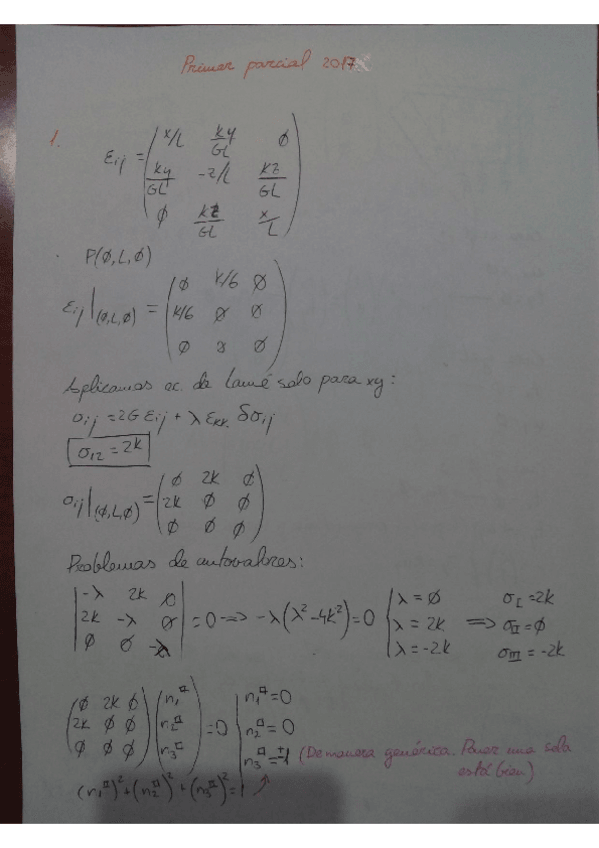 Primer parcial 2017
1.
εij = ( x/L ky/GL ø
ky/GL -z/L kz/GL
ø kz/GL x/L )
P(ø,L,ø)
εij|(ø,L,ø) = ( ø k/G ø
k/G ø ø
ø ø ø )
Aplicamos ec. de Lamé solo para xy:
σij = 2G εij + λ εkk δσij
σ12 = 2k
σij|(ø,L,ø) = ( ø 2k ø
2k ø ø
ø ø ø )
Problemas de autovalores:
| -λ 2k ø
2k -λ ø
ø ø -λ | = 0 => -λ(λ² - 4k²) = 0 { λ = ø
λ = 2k
λ = -2k => σI = 2k
σII = ø
σIII = -2k
( ø 2k ø
2k ø ø
ø ø ø ) ( n1^II
n2^II
n3^II ) = 0 | n1^II = 0
n2^II = 0
n3^II = ±1 (De manera genérica. Poner una sola
está bien)
(n1^II)² + (n2^II)² + (n3^II)² = 1